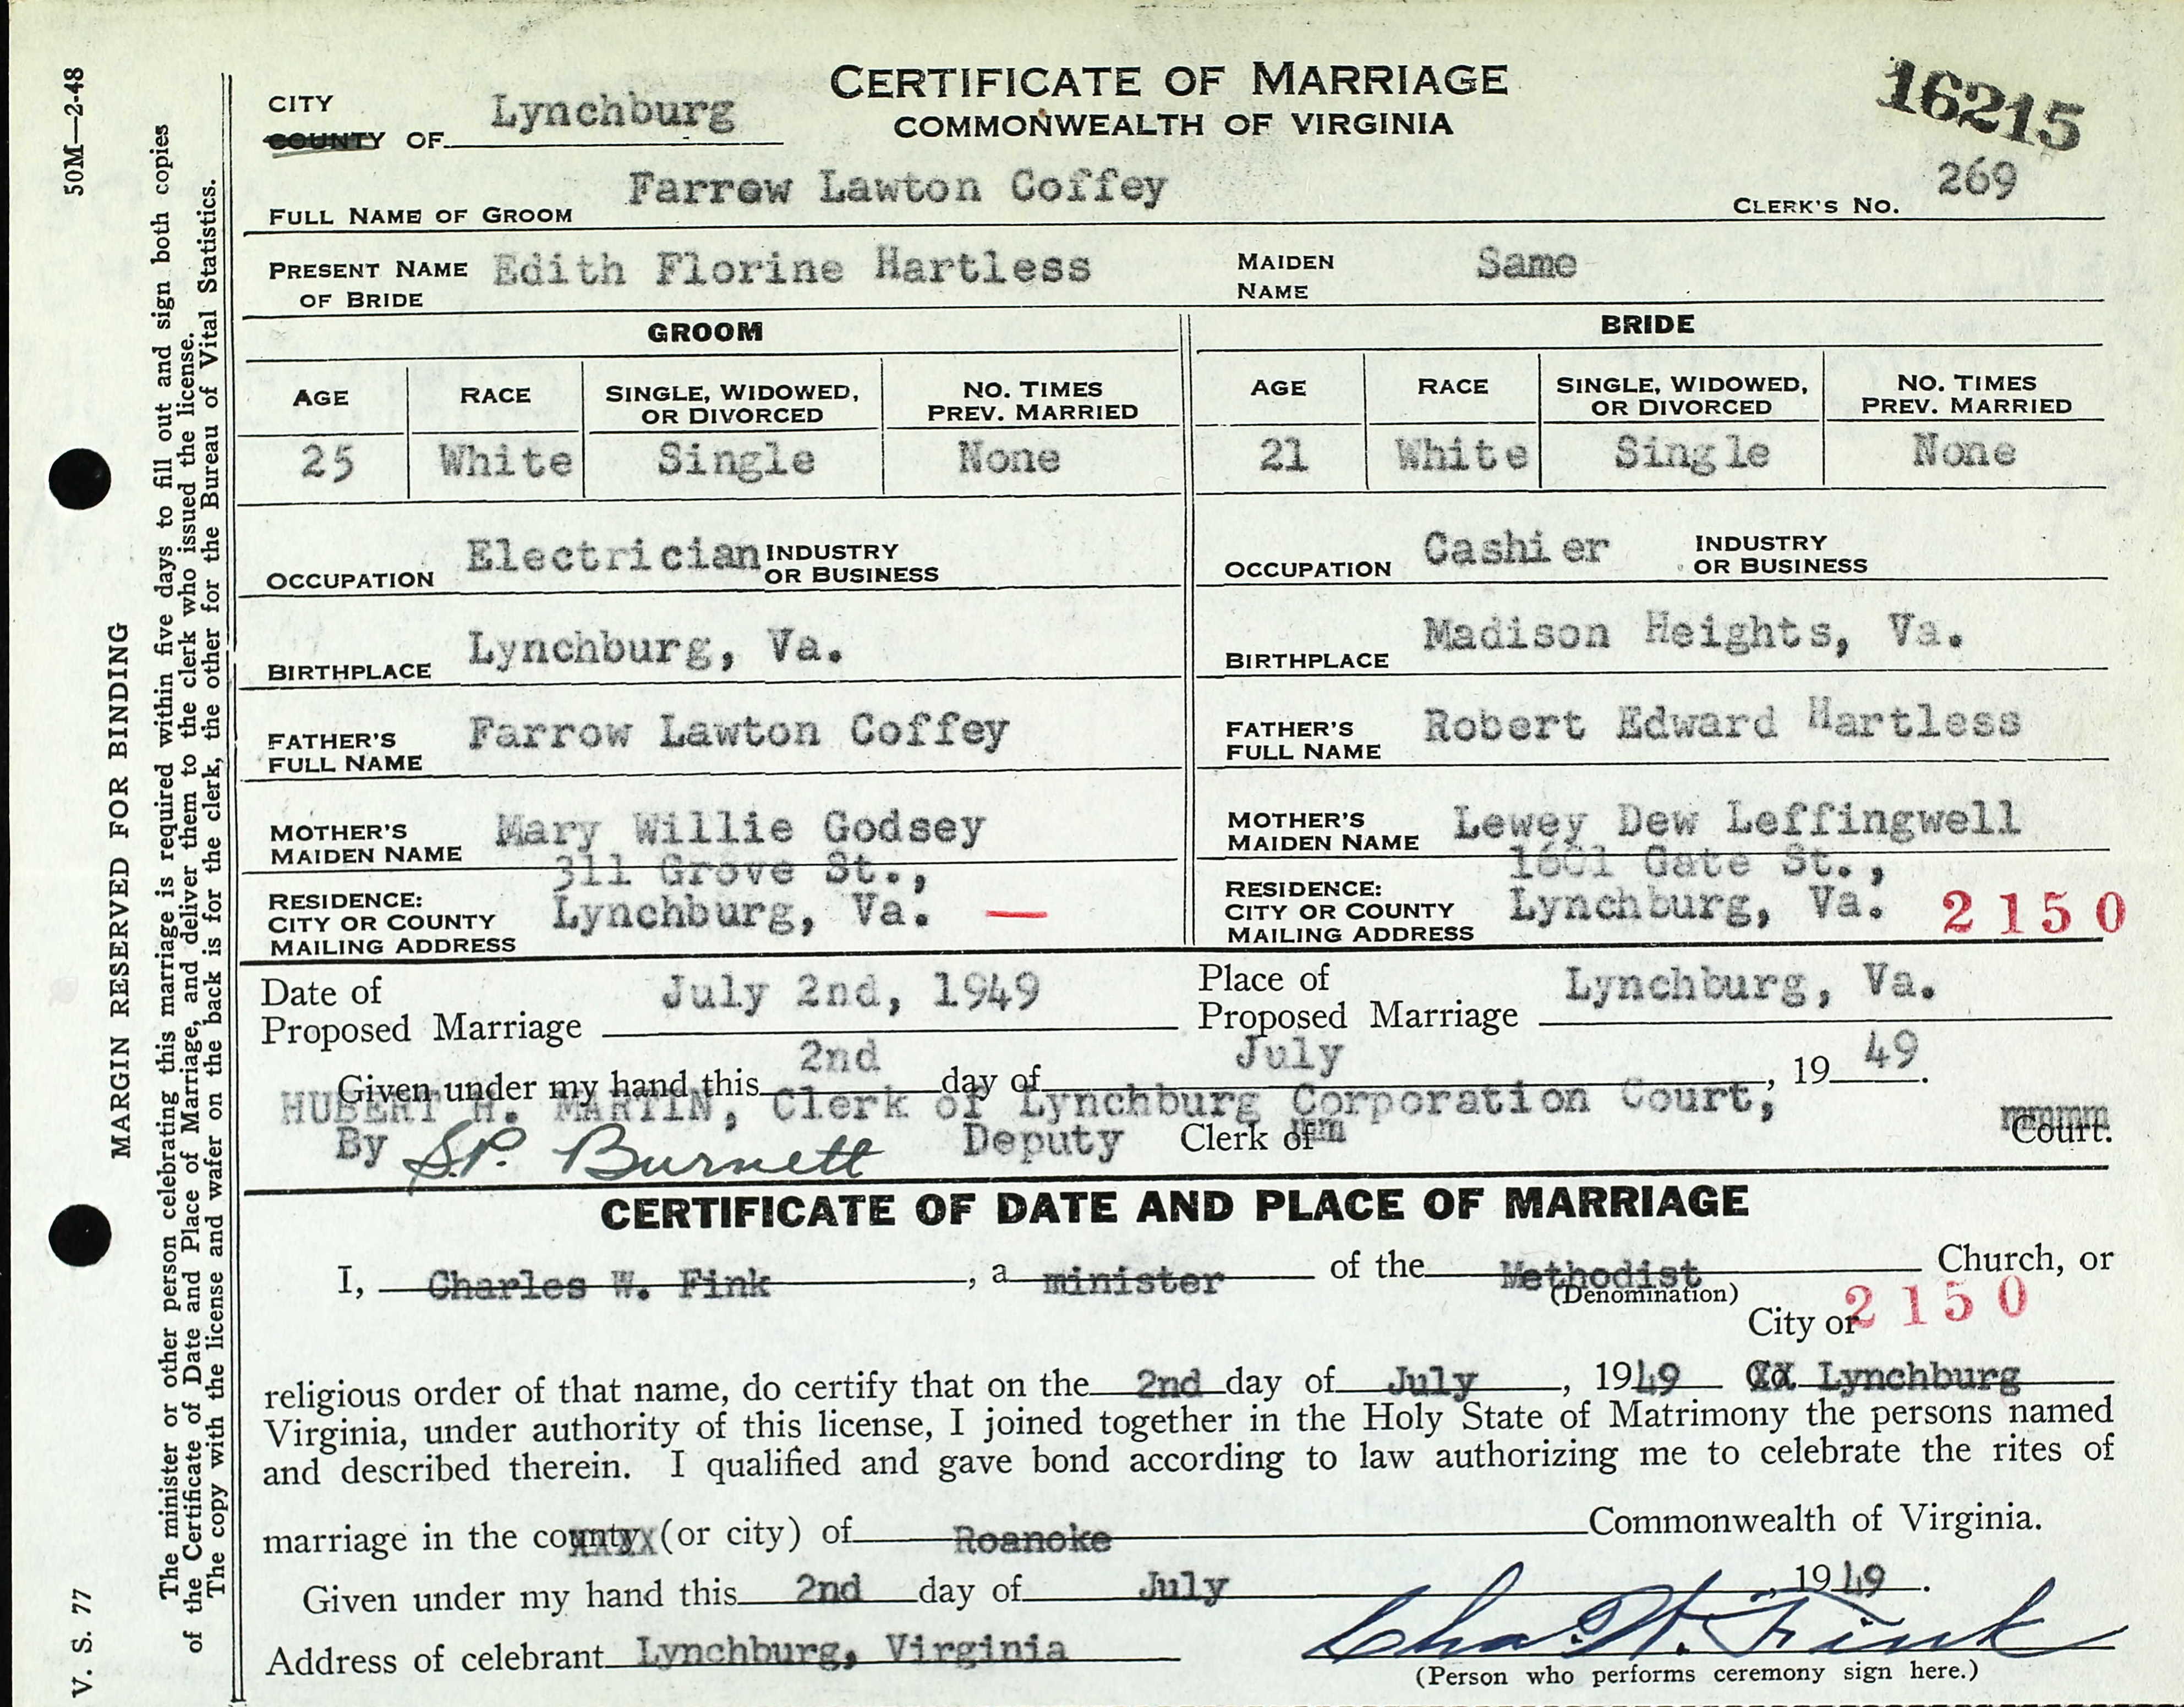 50M—2-48
MARGIN RESERVED FOR BINDING
V. S. 77
The minister or other person celebrating this marriage is required within five days to fill out and sign both copies
of the Certificate of Date and Place of Marriage, and deliver them to the clerk who issued the license.
The copy with the license and wafer on the back is for the clerk, the other for the Bureau of Vital Statistics.
CERTIFICATE OF MARRIAGE
COMMONWEALTH OF VIRGINIA
16215
CITY
COUNTY OF Lynchburg
FULL NAME OF GROOM Farrow Lawton Coffey CLERK'S NO. 269
PRESENT NAME OF BRIDE Edith Florine Hartless MAIDEN NAME Same
GROOM BRIDE
AGE RACE SINGLE, WIDOWED, OR DIVORCED NO. TIMES PREV. MARRIED AGE RACE SINGLE, WIDOWED, OR DIVORCED NO. TIMES PREV. MARRIED
25 White Single None 21 White Single None
OCCUPATION Electrician INDUSTRY OR BUSINESS OCCUPATION Cashier INDUSTRY OR BUSINESS
BIRTHPLACE Lynchburg, Va. BIRTHPLACE Madison Heights, Va.
FATHER'S FULL NAME Farrow Lawton Coffey FATHER'S FULL NAME Robert Edward Hartless
MOTHER'S MAIDEN NAME Mary Willie Godsey MOTHER'S MAIDEN NAME Lewey Dew Leffingwell
RESIDENCE: CITY OR COUNTY MAILING ADDRESS 311 Grove St., Lynchburg, Va. — RESIDENCE: CITY OR COUNTY MAILING ADDRESS 1601 Gate St., Lynchburg, Va. 2150
Date of Proposed Marriage July 2nd, 1949 Place of Proposed Marriage Lynchburg, Va.
Given under my hand this 2nd day of July, 1949.
HUBERT H. MARTIN, Clerk of Lynchburg Corporation Court,
By S.P. Burnett Deputy Clerk of Court.
CERTIFICATE OF DATE AND PLACE OF MARRIAGE
I, Charles W. Fink, a minister of the Methodist Church, or
(Denomination)
City or 2150
religious order of that name, do certify that on the 2nd day of July, 1949 XX Lynchburg
Virginia, under authority of this license, I joined together in the Holy State of Matrimony the persons named
and described therein. I qualified and gave bond according to law authorizing me to celebrate the rites of
marriage in the county (or city) of Roanoke Commonwealth of Virginia.
Given under my hand this 2nd day of July, 1949.
Address of celebrant Lynchburg, Virginia Chas. W. Fink
(Person who performs ceremony sign here.)